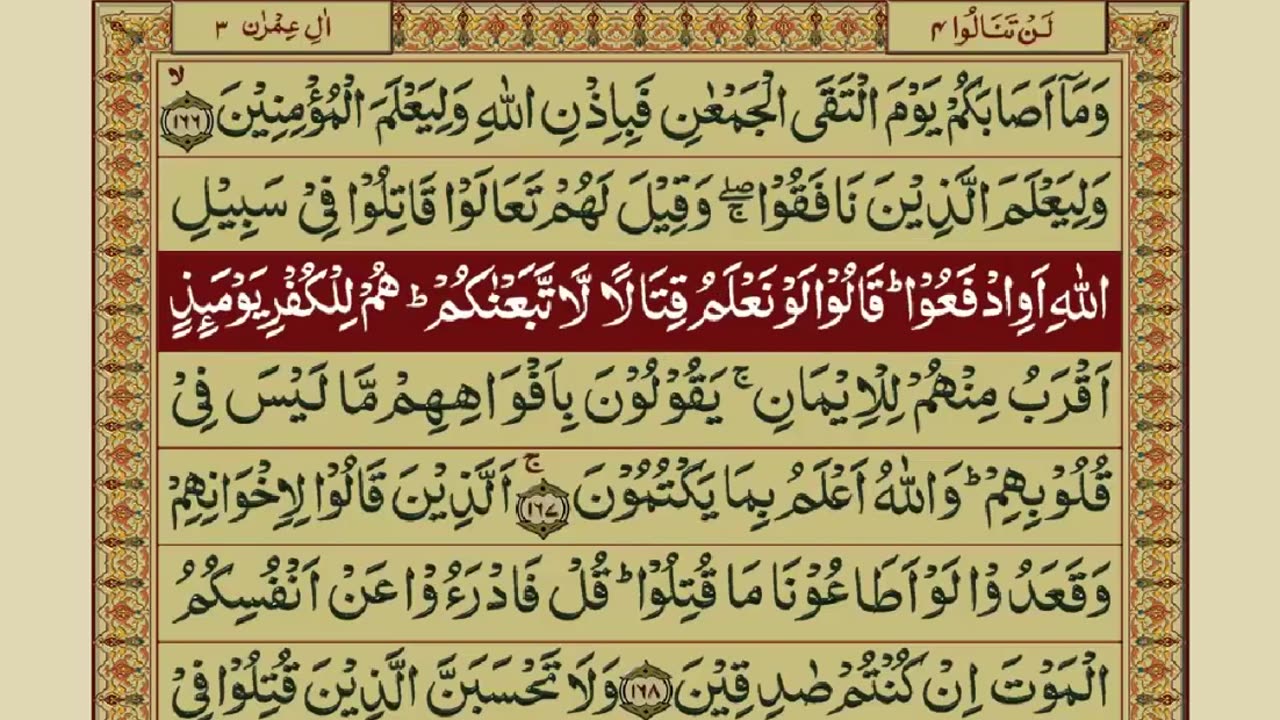 لَنْ تَنَالُوا ٤
اٰلِ عِمْرٰن ٣
وَمَاۤ اَصَابَكُمْ يَوْمَ الْتَقَى الْجَمْعٰنِ فَبِاِذْنِ اللّٰهِ وَلِيَعْلَمَ الْمُؤْمِنِيْنَ ۙ‏ ﴿۱۶۶﴾
وَلِيَعْلَمَ الَّذِيْنَ نَافَقُوْا ۖۚ وَقِيْلَ لَهُمْ تَعَالَوْا قَاتِلُوْا فِىْ سَبِيْلِ
اللّٰهِ اَوِ ادْفَعُوْا ؕ قَالُوْا لَوْ نَعْلَمُ قِتَالًا لَّا تَّبَعْنٰكُمْ ؕ هُمْ لِلْكُفْرِ يَوْمَىِٕذٍ
اَقْرَبُ مِنْهُمْ لِلْاِيْمَانِ ۚ يَقُوْلُوْنَ بِاَفْوَاهِهِمْ مَّا لَيْسَ فِىْ
قُلُوْبِهِمْ ؕ وَاللّٰهُ اَعْلَمُ بِمَا يَكْتُمُوْنَ ۚ ﴿۱۶۷﴾ اَلَّذِيْنَ قَالُوْا لِاِخْوَانِهِمْ
وَقَعَدُوْا لَوْ اَطَاعُوْنَا مَا قُتِلُوْا ؕ قُلْ فَادْرَءُوْا عَنْ اَنْفُسِكُمُ
الْمَوْتَ اِنْ كُنْتُمْ صٰدِقِيْنَ ﴿۱۶۸﴾ وَلَا تَحْسَبَنَّ الَّذِيْنَ قُتِلُوْا فِىْ